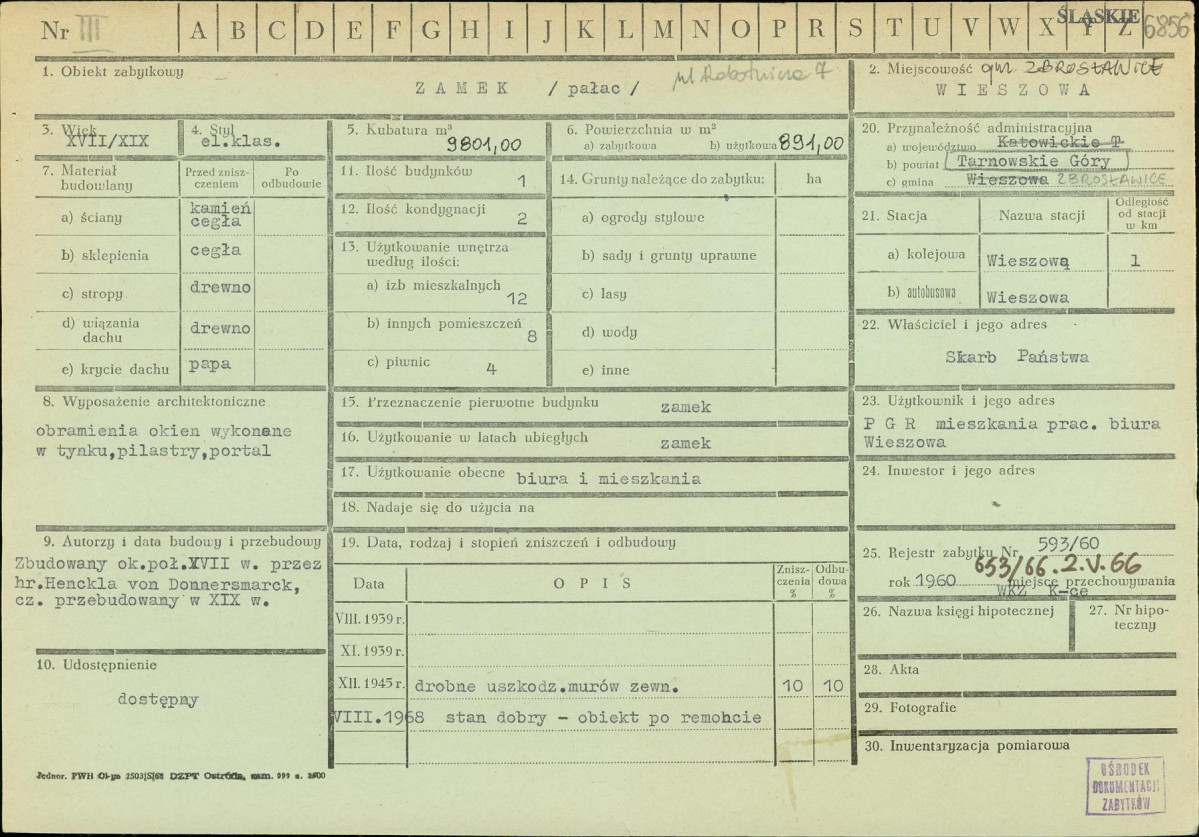 Nr III A B C D E F G H I J K L M N O P R S T U V W X Y Z ŚLĄSKIE 6856
1. Obiekt zabytkowy
ZAMEK /pałac/ ul Robotnicza 7
2. Miejscowość gm. ZBROSŁAWICE
WIESZOWA
3. Wiek
XVII/XIX
4. Styl
el.klas.
5. Kubatura m³
9801,00
6. Powierzchnia w m²
a) zabytkowa b) użytkowa 891,00
20. Przynależność administracyjna
a) województwo Katowickie T
b) powiat Tarnowskie Góry
c) gmina Wieszowa ZBROSŁAWICE
7. Materiał budowlany
Przed zniszczeniem
Po odbudowie
a) ściany kamień cegła
b) sklepienia cegła
c) stropy drewno
d) wiązania dachu drewno
e) krycie dachu papa
11. Ilość budynków 1
12. Ilość kondygnacji 2
13. Użytkowanie wnętrza
według ilości:
a) izb mieszkalnych 12
b) innych pomieszczeń 8
c) piwnic 4
14. Grunty należące do zabytku: ha
a) ogrody stylowe
b) sady i grunty uprawne
c) lasy
d) wody
e) inne
21. Stacja Nazwa stacji Odległość od stacji w km
a) kolejowa Wieszową 1
b) autobusowa Wieszowa
22. Właściciel i jego adres
Skarb Państwa
8. Wyposażenie architektoniczne
obramienia okien wykonane
w tynku,pilastry,portal
15. Przeznaczenie pierwotne budynku zamek
16. Użytkowanie w latach ubiegłych zamek
17. Użytkowanie obecne biura i mieszkania
18. Nadaje się do użycia na
23. Użytkownik i jego adres
P G R mieszkania prac. biura
Wieszowa
24. Inwestor i jego adres
9. Autorzy i data budowy i przebudowy
Zbudowany ok.poł.XVII w. przez
hr.Henckla von Donnersmarck,
cz. przebudowany w XIX w.
10. Udostępnienie
dostępny
19. Data, rodzaj i stopień zniszczeń i odbudowy
Data OPIS Zniszczenia % Odbudowa %
VIII. 1939 r.
XI. 1939 r.
XII. 1945 r. drobne uszkodz.murów zewn. 10 10
VIII.1968 stan dobry - obiekt po remohcie
25. Rejestr zabytku Nr 593/60
653/66. 2.V.66
rok 1960 miejsce przechowywania
WKZ K-ce
26. Nazwa księgi hipotecznej
27. Nr hipoteczny
28. Akta
29. Fotografie
30. Inwentaryzacja pomiarowa
OŚRODEK
DOKUMENTACJI
ZABYTKÓW